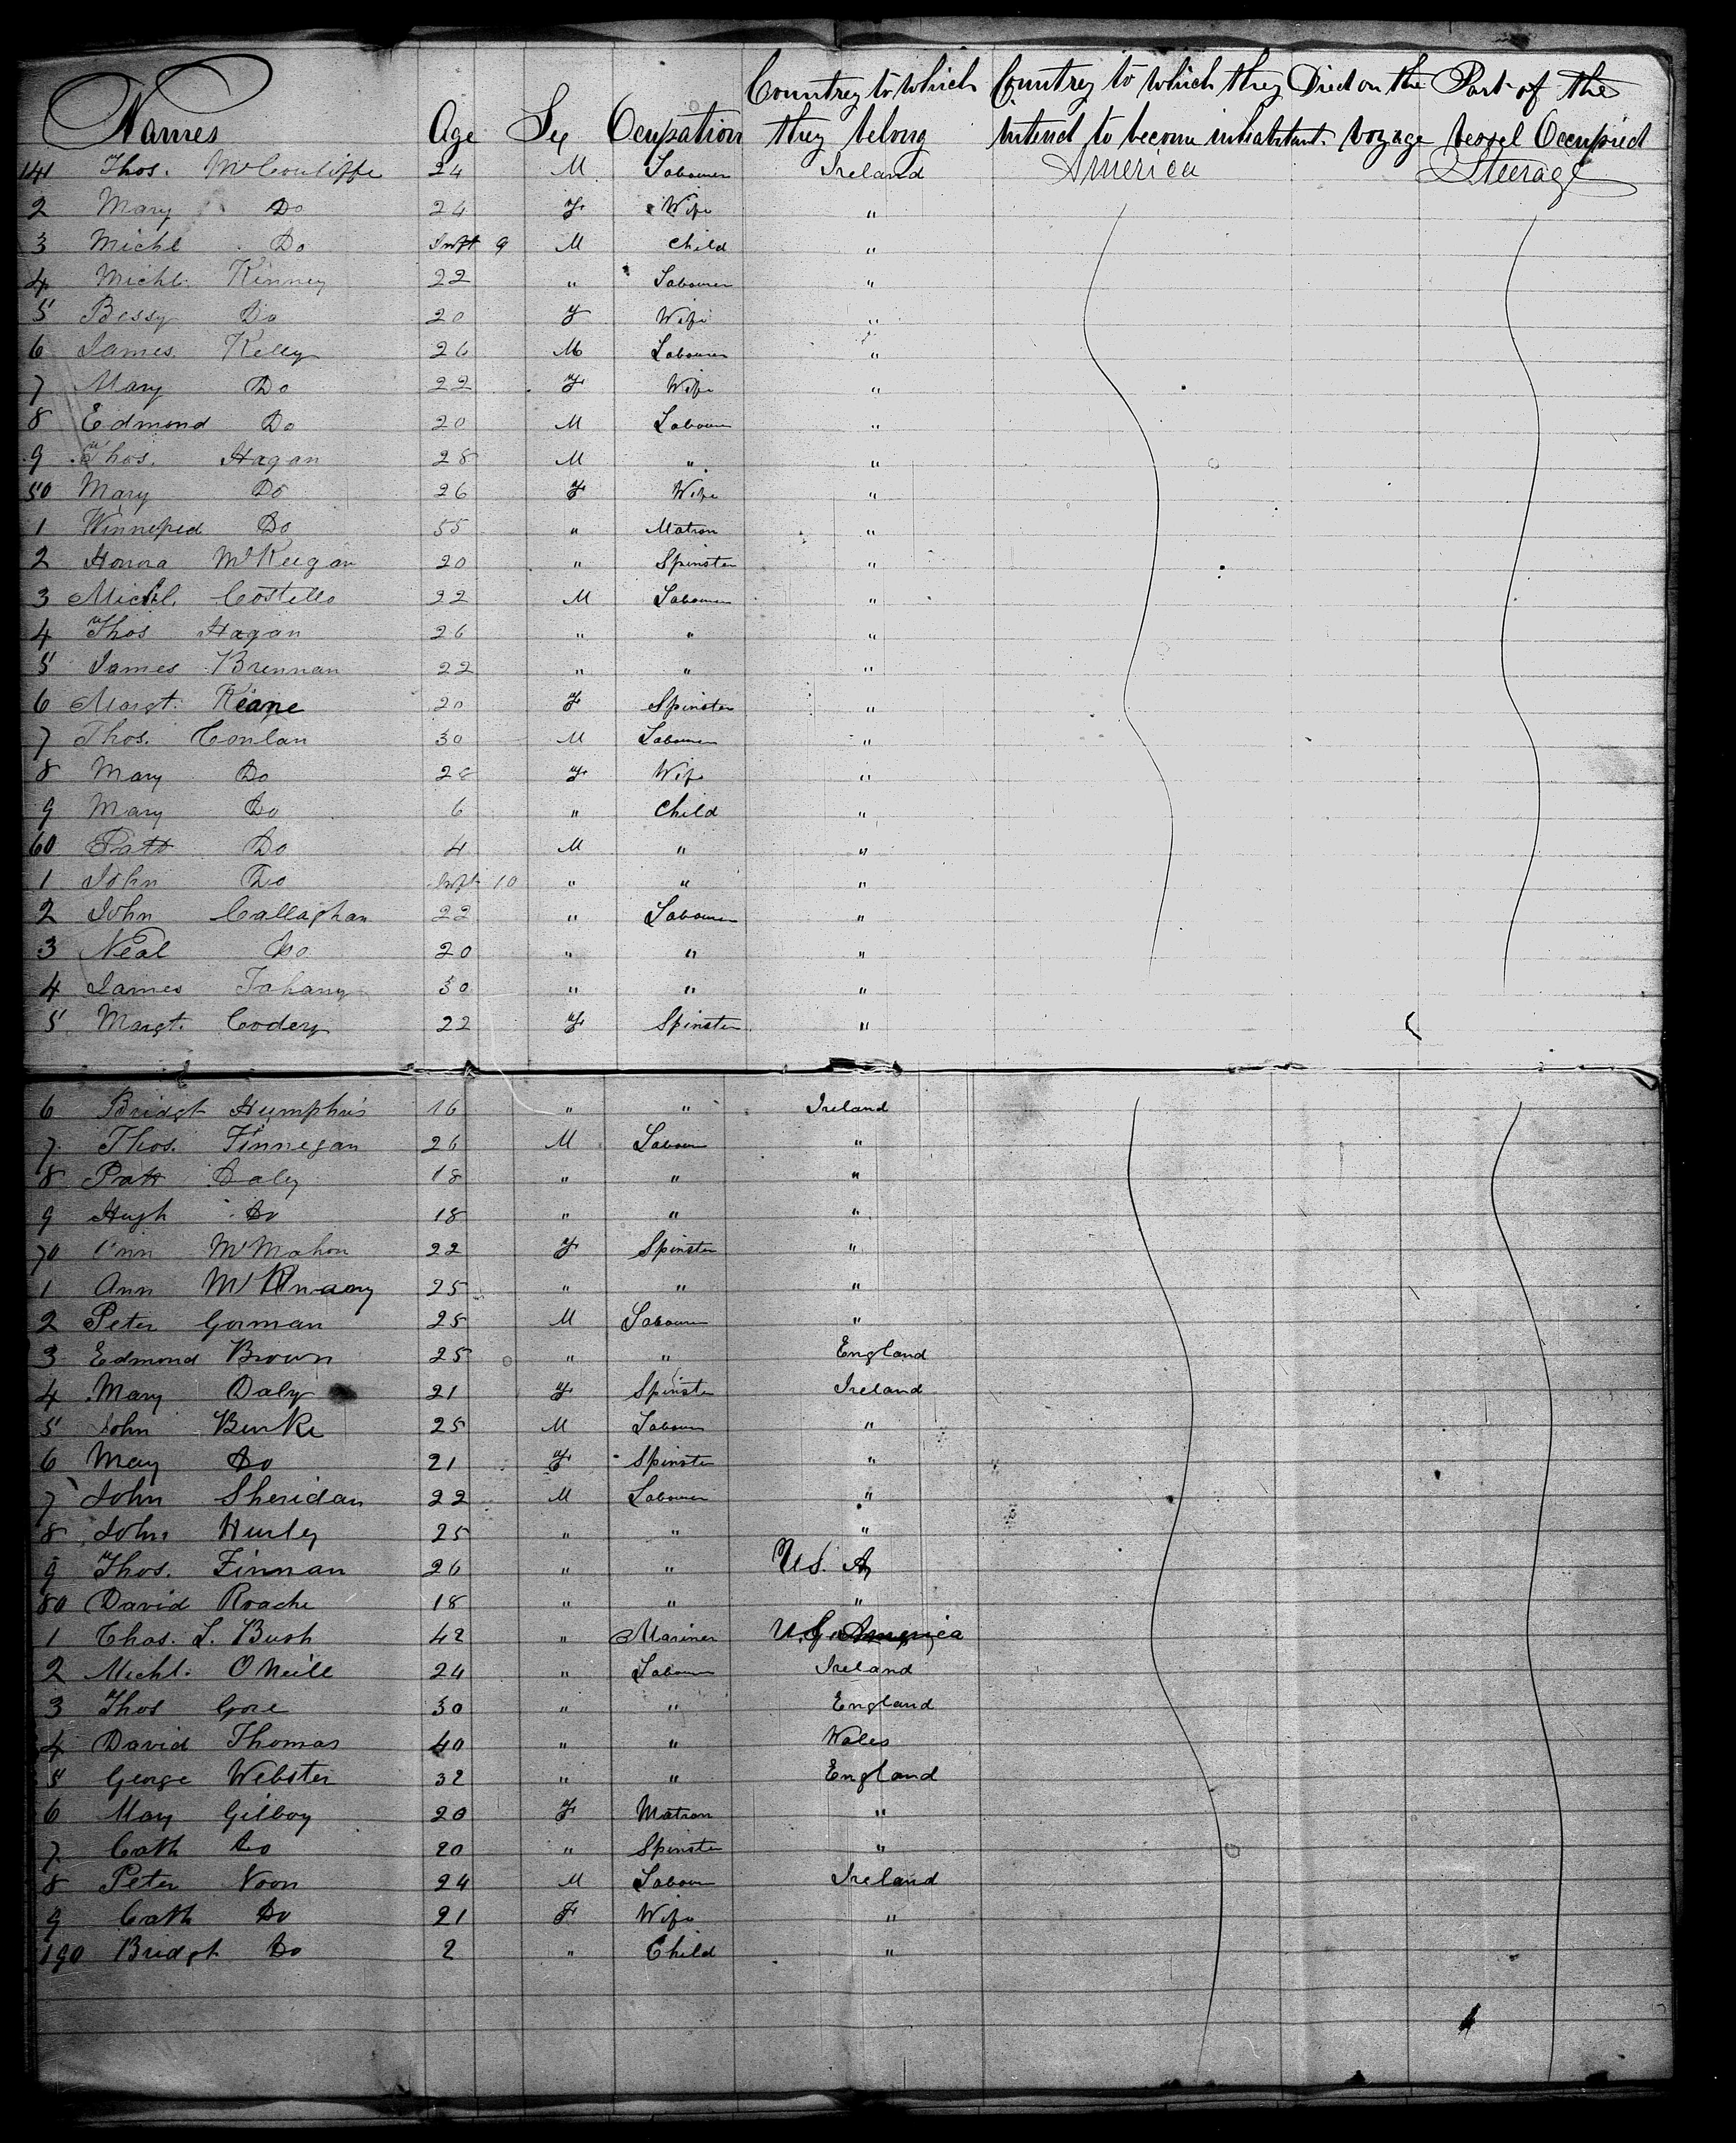 Names Age Sex Ocupation Countrey to which they belong Countrey to which they intend to become inhabitant. Died on the voyage Part of the vessel Occupied
141 Thos. McCouliffe 24 M Labourer Ireland America Steerage
2 Mary Do 24 F Wife "
3 Michl Do Inft 9 M Child "
4 Michl. Kinney 22 " Labourer "
5 Bessy Do 20 F Wife "
6 James Kelly 26 M Labourer "
7 Mary Do 22 F Wife "
8 Edmond Do 20 M Labourer "
9 Thos. Hagan 28 M " "
50 Mary Do 26 F Wife "
1 Winnefred Do 55 " Matron "
2 Honora McKeegan 20 " Spinster "
3 Michl. Costello 22 M Labourer "
4 Thos Hagan 26 " " "
5 James Brennan 22 " " "
6 Margt. Keane 20 F Spinster "
7 Thos. Conlan 30 M Labourer "
8 Mary Do 28 F Wife "
9 Mary Do 6 " Child "
60 Patt Do 4 M " "
1 John Do Inft 10 " " "
2 John Callaghan 22 " Labourer "
3 Neal Do 20 " " "
4 James Tahany 30 " " "
5 Margt. Codery 22 F Spinster "
6 Bridgt Humphris 16 " " Ireland
7 Thos. Finnegan 26 M Labour "
8 Patt Daly 18 " " "
9 Hugh Do 18 " " "
70 Ann McMahon 22 F Spinster "
1 Ann 25 " " "
2 Peter Gorman 25 M Labourer "
3 Edmond Brown 25 " " England
4 Mary Daly 21 F Spinster Ireland
5 John Burke 25 M Labour "
6 Mary Do 21 F Spinster "
7 John Sheridan 22 M Labourer "
8 John Hurley 25 " " "
9 Thos. Finnan 26 " " U.S. A
80 David Roache 18 " " "
1 Chas. L. Bush 42 " Mariner U.S. America
2 Michl. O Neill 24 " Labour Ireland
3 Thos Gore 30 " " England
4 David Thomas 40 " " Wales
5 George Webster 32 " " England
6 Mary Gilboy 20 F Matron "
7 Cath Do 20 " Spinster "
8 Peter Noon 24 M Labour Ireland
9 Cath Do 21 F Wife "
190 Bridgt Do 2 " Child "